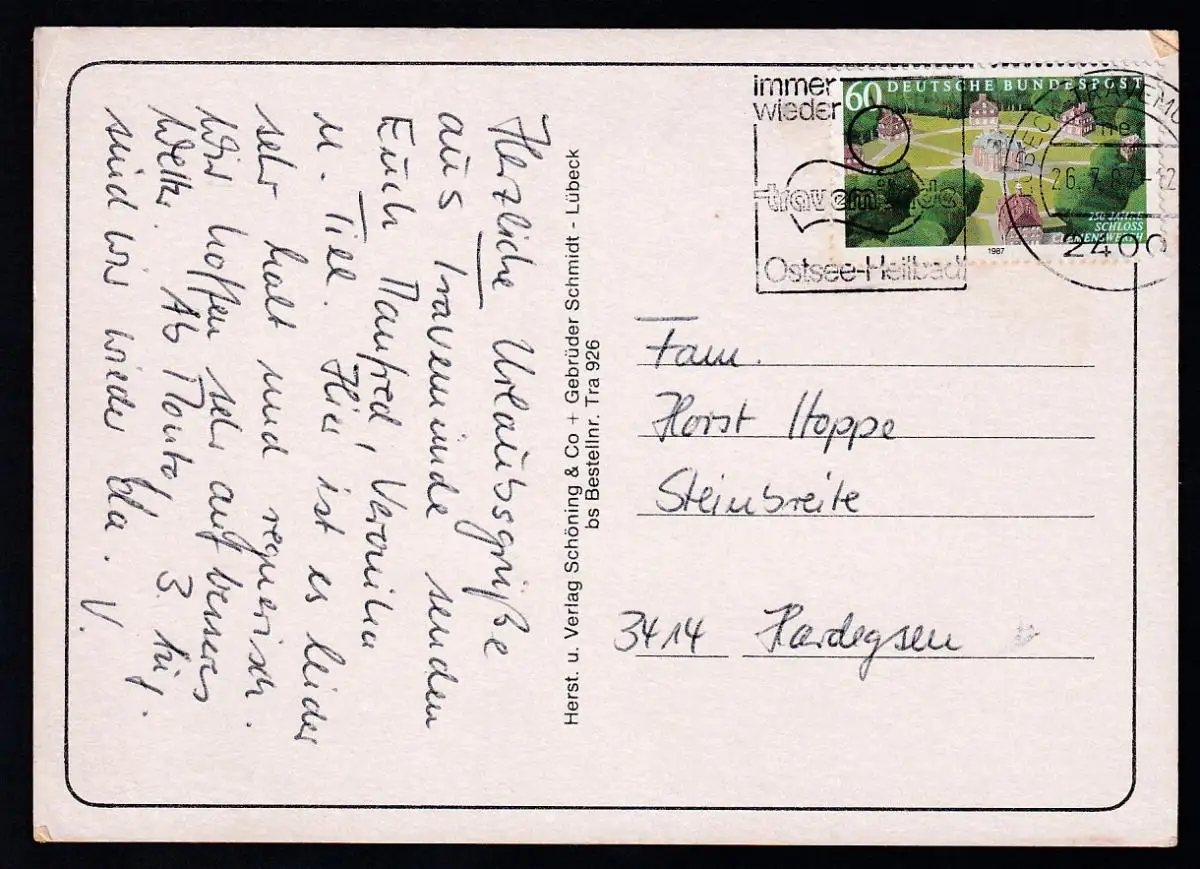 Herzliche Urlaubsgrüße
aus Travemünde senden
Euch Manfred, Veronika
u. Till. Hier ist es leider
sehr kalt und regnerisch.
Wir hoffen sehr auf besseres
Wetter. Ab Montag 3. Aug.
sind wir wieder da. V.
Herst. u. Verlag Schöning & Co + Gebrüder Schmidt - Lübeck
bs Bestellnr. Tra 926
immer
wieder
travemünde
Ostsee-Heilbad
60 DEUTSCHE BUNDESPOST
250 JAHRE
SCHLOSS
CLEMENSWERTH
1987
26.7.87-12
2400
Fam.
Horst Hoppe
Steinbreite
3414 Hardegsen